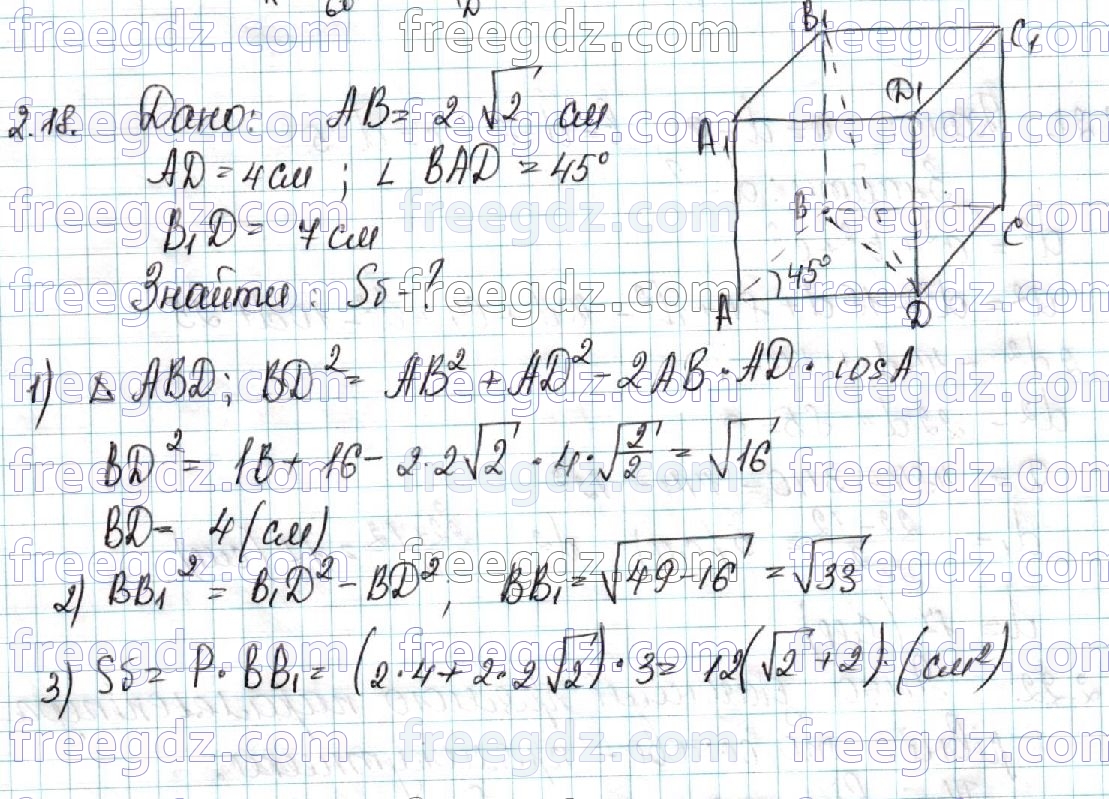 2.18. Дано: AB = 2√2 см
AD = 4 см ; ∠ BAD = 45°
B₁D = 7 см
Знайти : Sб - ?
B₁
C₁
D₁
A₁
B
C
45°
A
D
1) △ ABD; BD² = AB² + AD² - 2AB · AD · cosA
BD² = 1B + 16 - 2·2√2 · 4 · √2/2 = √16
BD = 4 (см)
2) BB₁² = B₁D² - BD² , BB₁ = √49-16 = √33
3) Sб = P · BB₁ = (2·4 + 2·2√2) · 3 = 12(√2 + 2) · (см²)
freegdz.com